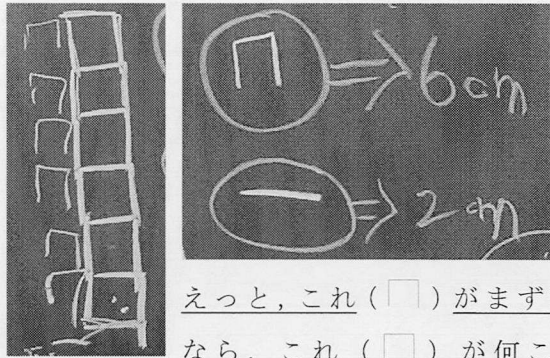 ⇒ 6cm
⇒ 2cm
えっと，これ（⊓）がまず
なら，これ（⊓）が何こ